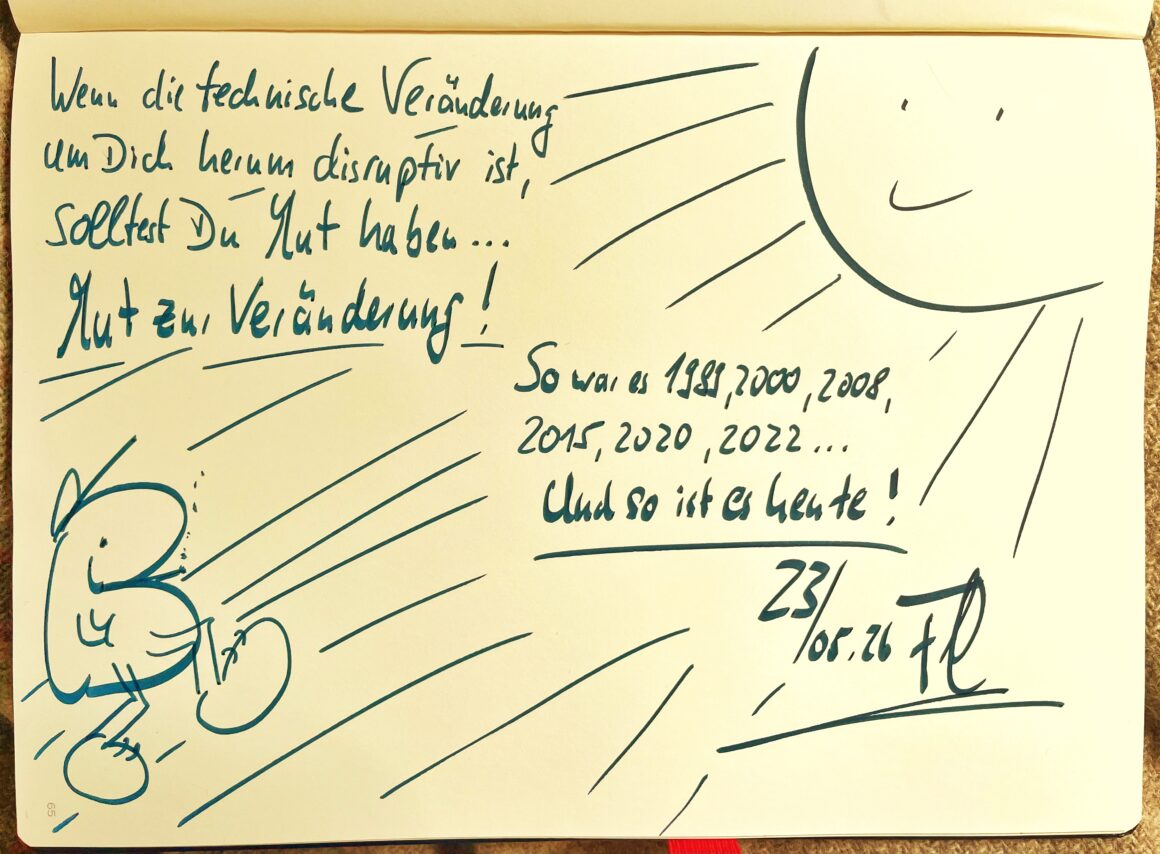 Wenn die technische Veränderung
um Dich herum disruptiv ist,
solltest Du Mut haben...
Mut zur Veränderung!
So war es 1989, 2000, 2008,
2015, 2020, 2022...
Und so ist es heute!
23/05.26
65